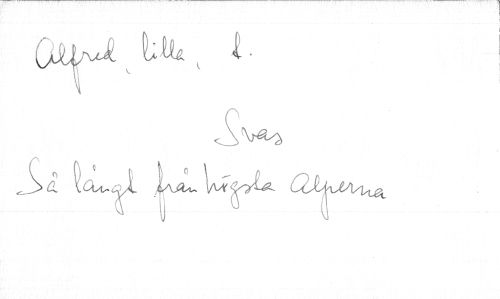 Alfred, lilla, t.
Svas
Så långt från högsta Alperna